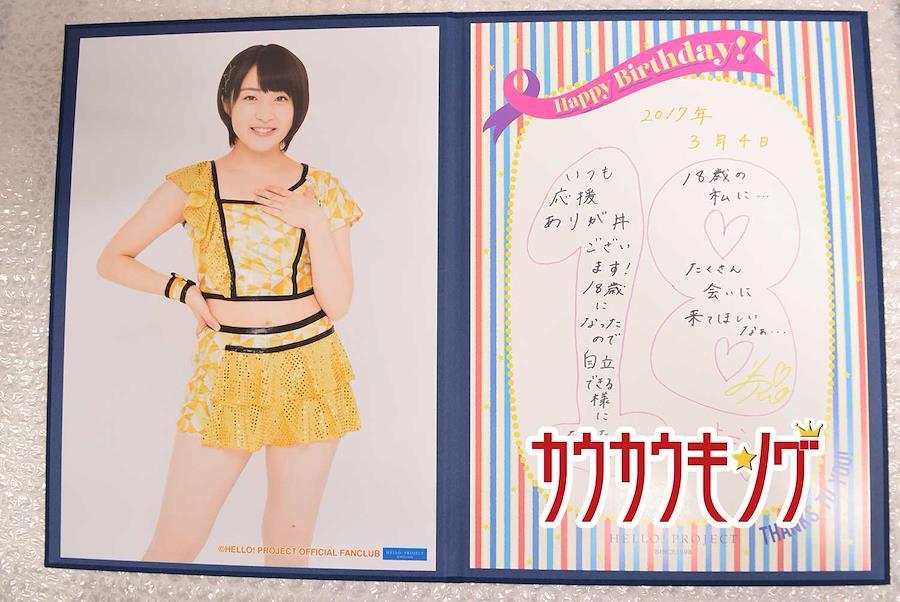 Happy Birthday!
2017年
3月4日
いつも
応援
ありが丼
ござい
ます!
18歳
に
なった
ので
自立
できる
様に
18歳の
私に…
たくさん
会いに
来てほしい
なぁ…
カウカウキング
THANKS TO YOU!
HELLO! PROJECT
SINCE 1998
©HELLO! PROJECT OFFICIAL FANCLUB
HELLO! PROJECT